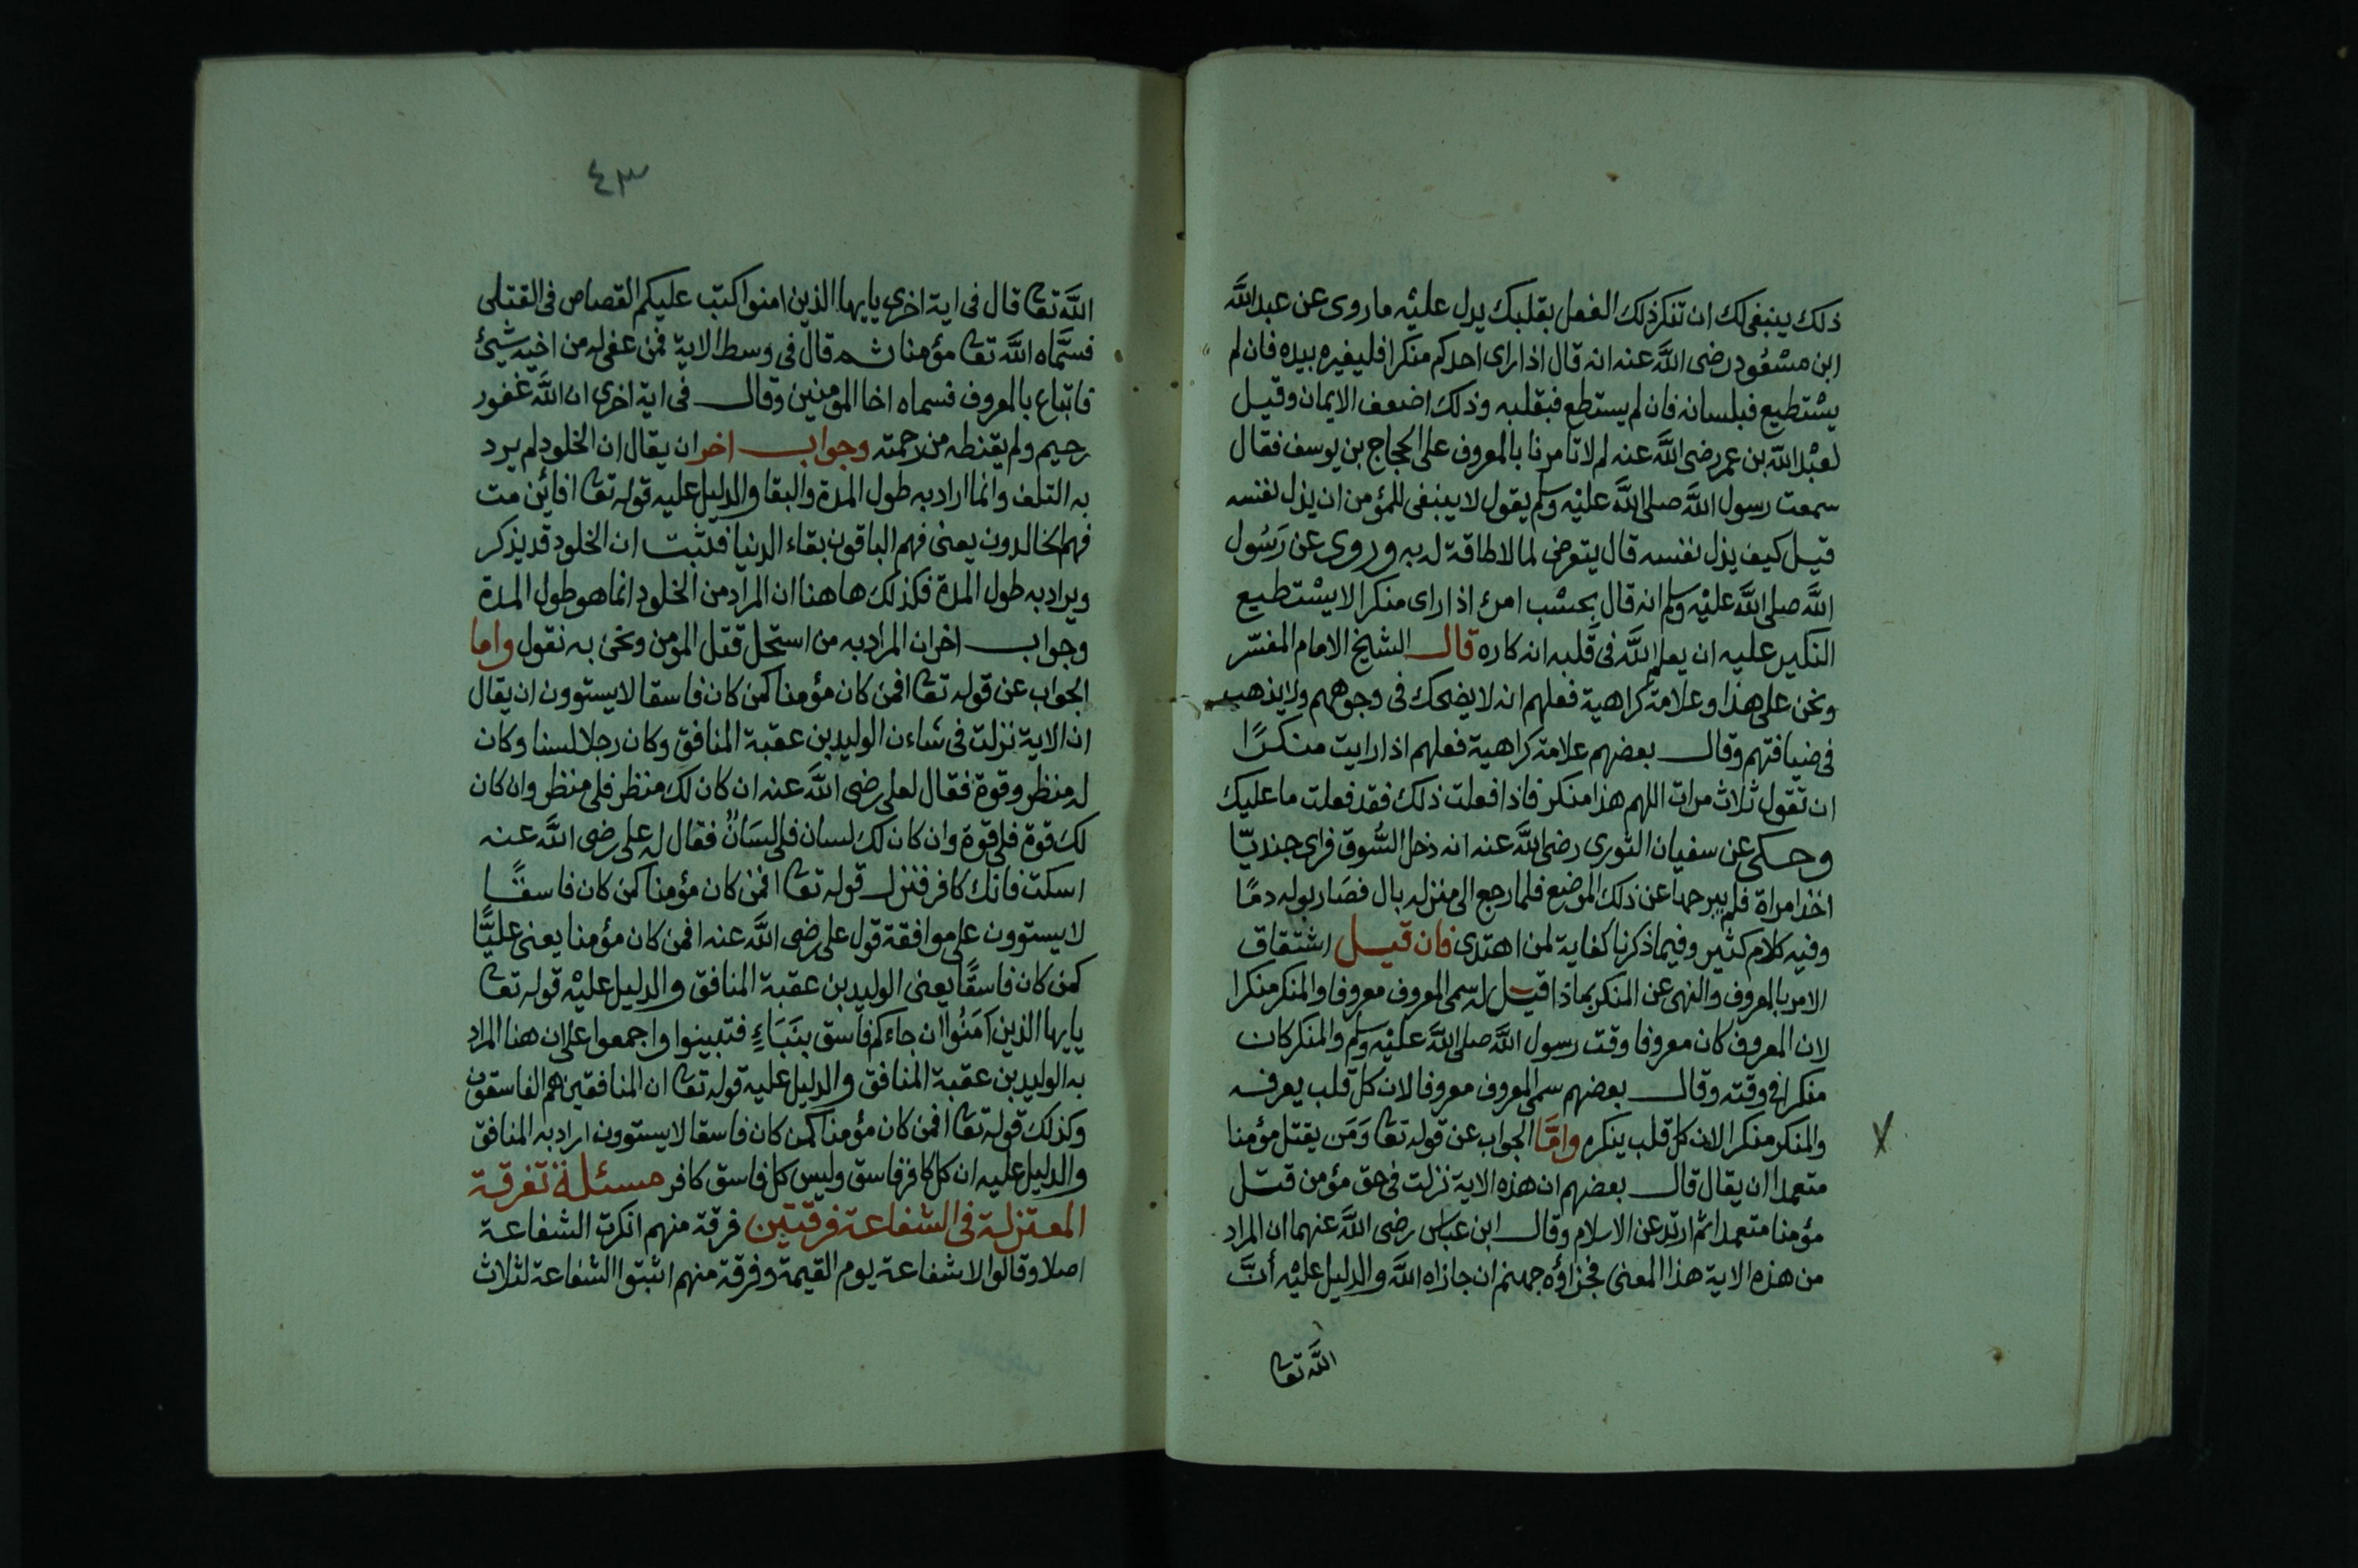 ذلك ينبغى لك ان تنكر ذلك الفعل بقلبك يدل عليه ما روى عن عبد الله
ابن مسعود رضى الله عنه انه قال اذا راى احدكم منكرا فليغيره بيده فان لم
يستطيع فبلسانه فان لم يستطع فبقلبه وذلك اضعف الايمان وقيل
لعبد الله بن عمر رضى الله عنه لم لا تامرنا بالمعروف على الحجاج بن يوسف فقال
سمعت رسول الله صلى الله عليه وسلم يقول لا ينبغى للمؤمن ان يذل نفسه
قيل كيف يذل نفسه قال يتعرض لما لا طاقة له به وروى عن رسول
الله صلى الله عليه وسلم انه قال بحسب امرئ اذا راى منكرا لا يستطيع
النكير عليه ان يعلم الله فى قلبه انه كاره قال الشيخ الامام المفسر
ونحن على هذا وعلامة كراهية فعلهم انه لا يضحك فى وجوههم ولا يذهب
فى ضيافتهم وقال بعضهم علامة كراهية فعلهم اذا رايت منكرًا
ان تقول ثلاث مرات اللهم هذا منكر فاذا فعلت ذلك فقد فعلت ما عليك
وحكى عن سفيان الثورى رضى الله عنه انه دخل السوق فراى جنديًّا
اخذ امراة فلم يبرحها عن ذلك الموضع فلما رجع الى منزله بال فصار بوله دمًا
وفيه كلام كثير وفيما ذكرنا كفاية لمن اهتدى فان قيل اشتقاق
الامر بالمعروف والنهى عن المنكر بماذا قيل له سمى المعروف معروفا والمنكر منكرا
لان المعروف كان معروفا وقت رسول الله صلى الله عليه وسلم والمنكر كان
منكرا فى وقته وقال بعضهم سمى المعروف معروفا لان كل قلب يعرفه
والمنكر منكرا لان كل قلب ينكره وامَّا الجواب عن قوله تعا وَمَن يقتل مؤمنا
متعمدا ان يقال قال بعضهم ان هذه الاية نزلت فى حق مؤمن قتل
مؤمنا متعمدا ثم ارتد عن الاسلام وقال ابن عباس رضى الله عنهما ان المراد
من هذه الاية هذا المعنى فجزاؤه جهنم ان جازاه الله والدليل عليه أنَّ
الله تعا
٤٣
الله تعا قال فى اية اخرى يايها الذين امنوا كتب عليكم القصاص فى القتلى
فسمَّاه الله تعا مؤمنا ثم قال فى وسط الاية فمن عفى له من اخيه شيئ
فاتباع بالمعروف فسماه اخا المؤمنين وقال فى اية اخرى ان الله غفور
رحيم ولم يقنطه من رحمته وجواب اخر ان يقال ان الخلود لم يرد
به التلف وانما اراد به طول المدة والبقا والدليل عليه قوله تعا افائن مت
فهم الخالدون يعنى فهم الباقون بقاء الدنيا فثبت ان الخلود قد يذكر
ويراد به طول المدة فكذلك هاهنا ان المراد من الخلود انما هو طول المدة
وجواب اخر ان المراد به من استحل قتل المومن ونحن به نقول واما
الجواب عن قوله تعا افمن كان مؤمنا كمن كان فاسقا لا يستوون ان يقال
ان الاية نزلت فى شاءن الوليد بن عقبة المنافق وكان رجلا لسنا وكان
له منظر وقوة فقال لعلى رضى الله عنه ان كان لك منظر فلى منظر وان كان
لك قوة فلى قوة وان كان لك لسان فلى لسَانٌ فقال له على رضى الله عنه
اسكت فانك كافر فنزل قوله تعا افمن كان مؤمنا كمن كان فاسقًا
لا يستوون على موافقة قول على رضى الله عنه افمن كان مؤمنا يعنى عليًّا
كمن كان فاسقًا يعنى الوليد بن عقبة المنافق والدليل عليه قوله تعا
يايها الذين آمَنُوا ان جاءكم فاسق بِنَبَاءٍ فتبينوا واجمعوا على ان هنا المراد
به الوليد بن عقبة المنافق والدليل عليه قوله تعا ان المنافقين هم الفاسقون
وكذلك قوله تعا افمن كان مؤمنا كمن كان فاسقا لا يستوون اراد به المنافق
والدليل عليه ان كل كافر فاسق وليس كل فاسق كافر مسئلة تفرقة
المعتزلة فى الشفاعة فرقتين فرقة منهم انكرت الشفاعة
اصلا وقالوا لا شفاعة يوم القيمة وفرقة منهم اثبتوا الشفاعة لثلاث